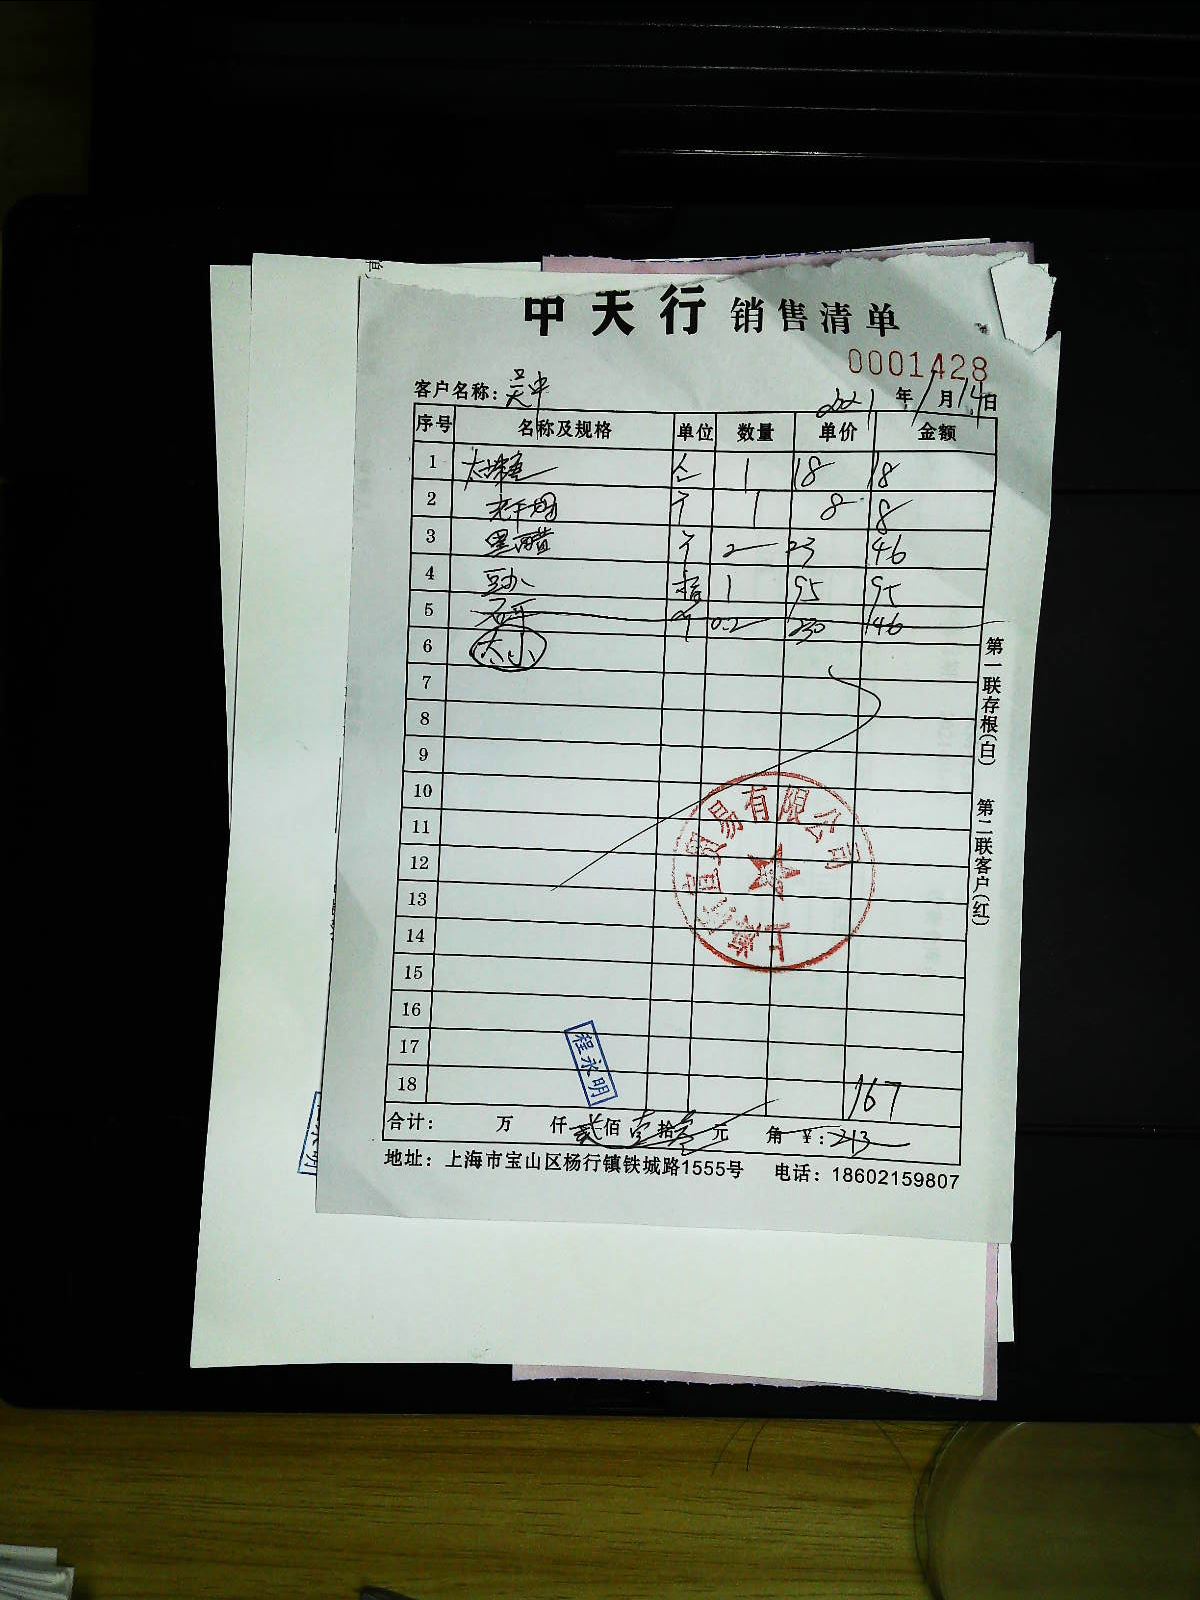 中天行 销售清单
0001428
客户名称：吴中 2021年1月14日
序号 名称及规格 单位 数量 单价 金额
1 1 18 18
2 个 1 8 8
3 黑醋 个 2 23 46
4 1 95 95
5 个 0.2 230 146
6 大小
7
8
9
10
11
12
13
14
15
16
17
18 167
合计： 万 仟 贰佰壹拾叁元 角 ￥：213
地址：上海市宝山区杨行镇铁城路1555号 电话：18602159807
第一联存根(白) 第二联客户(红)
上海 贸易有限公司
程永明